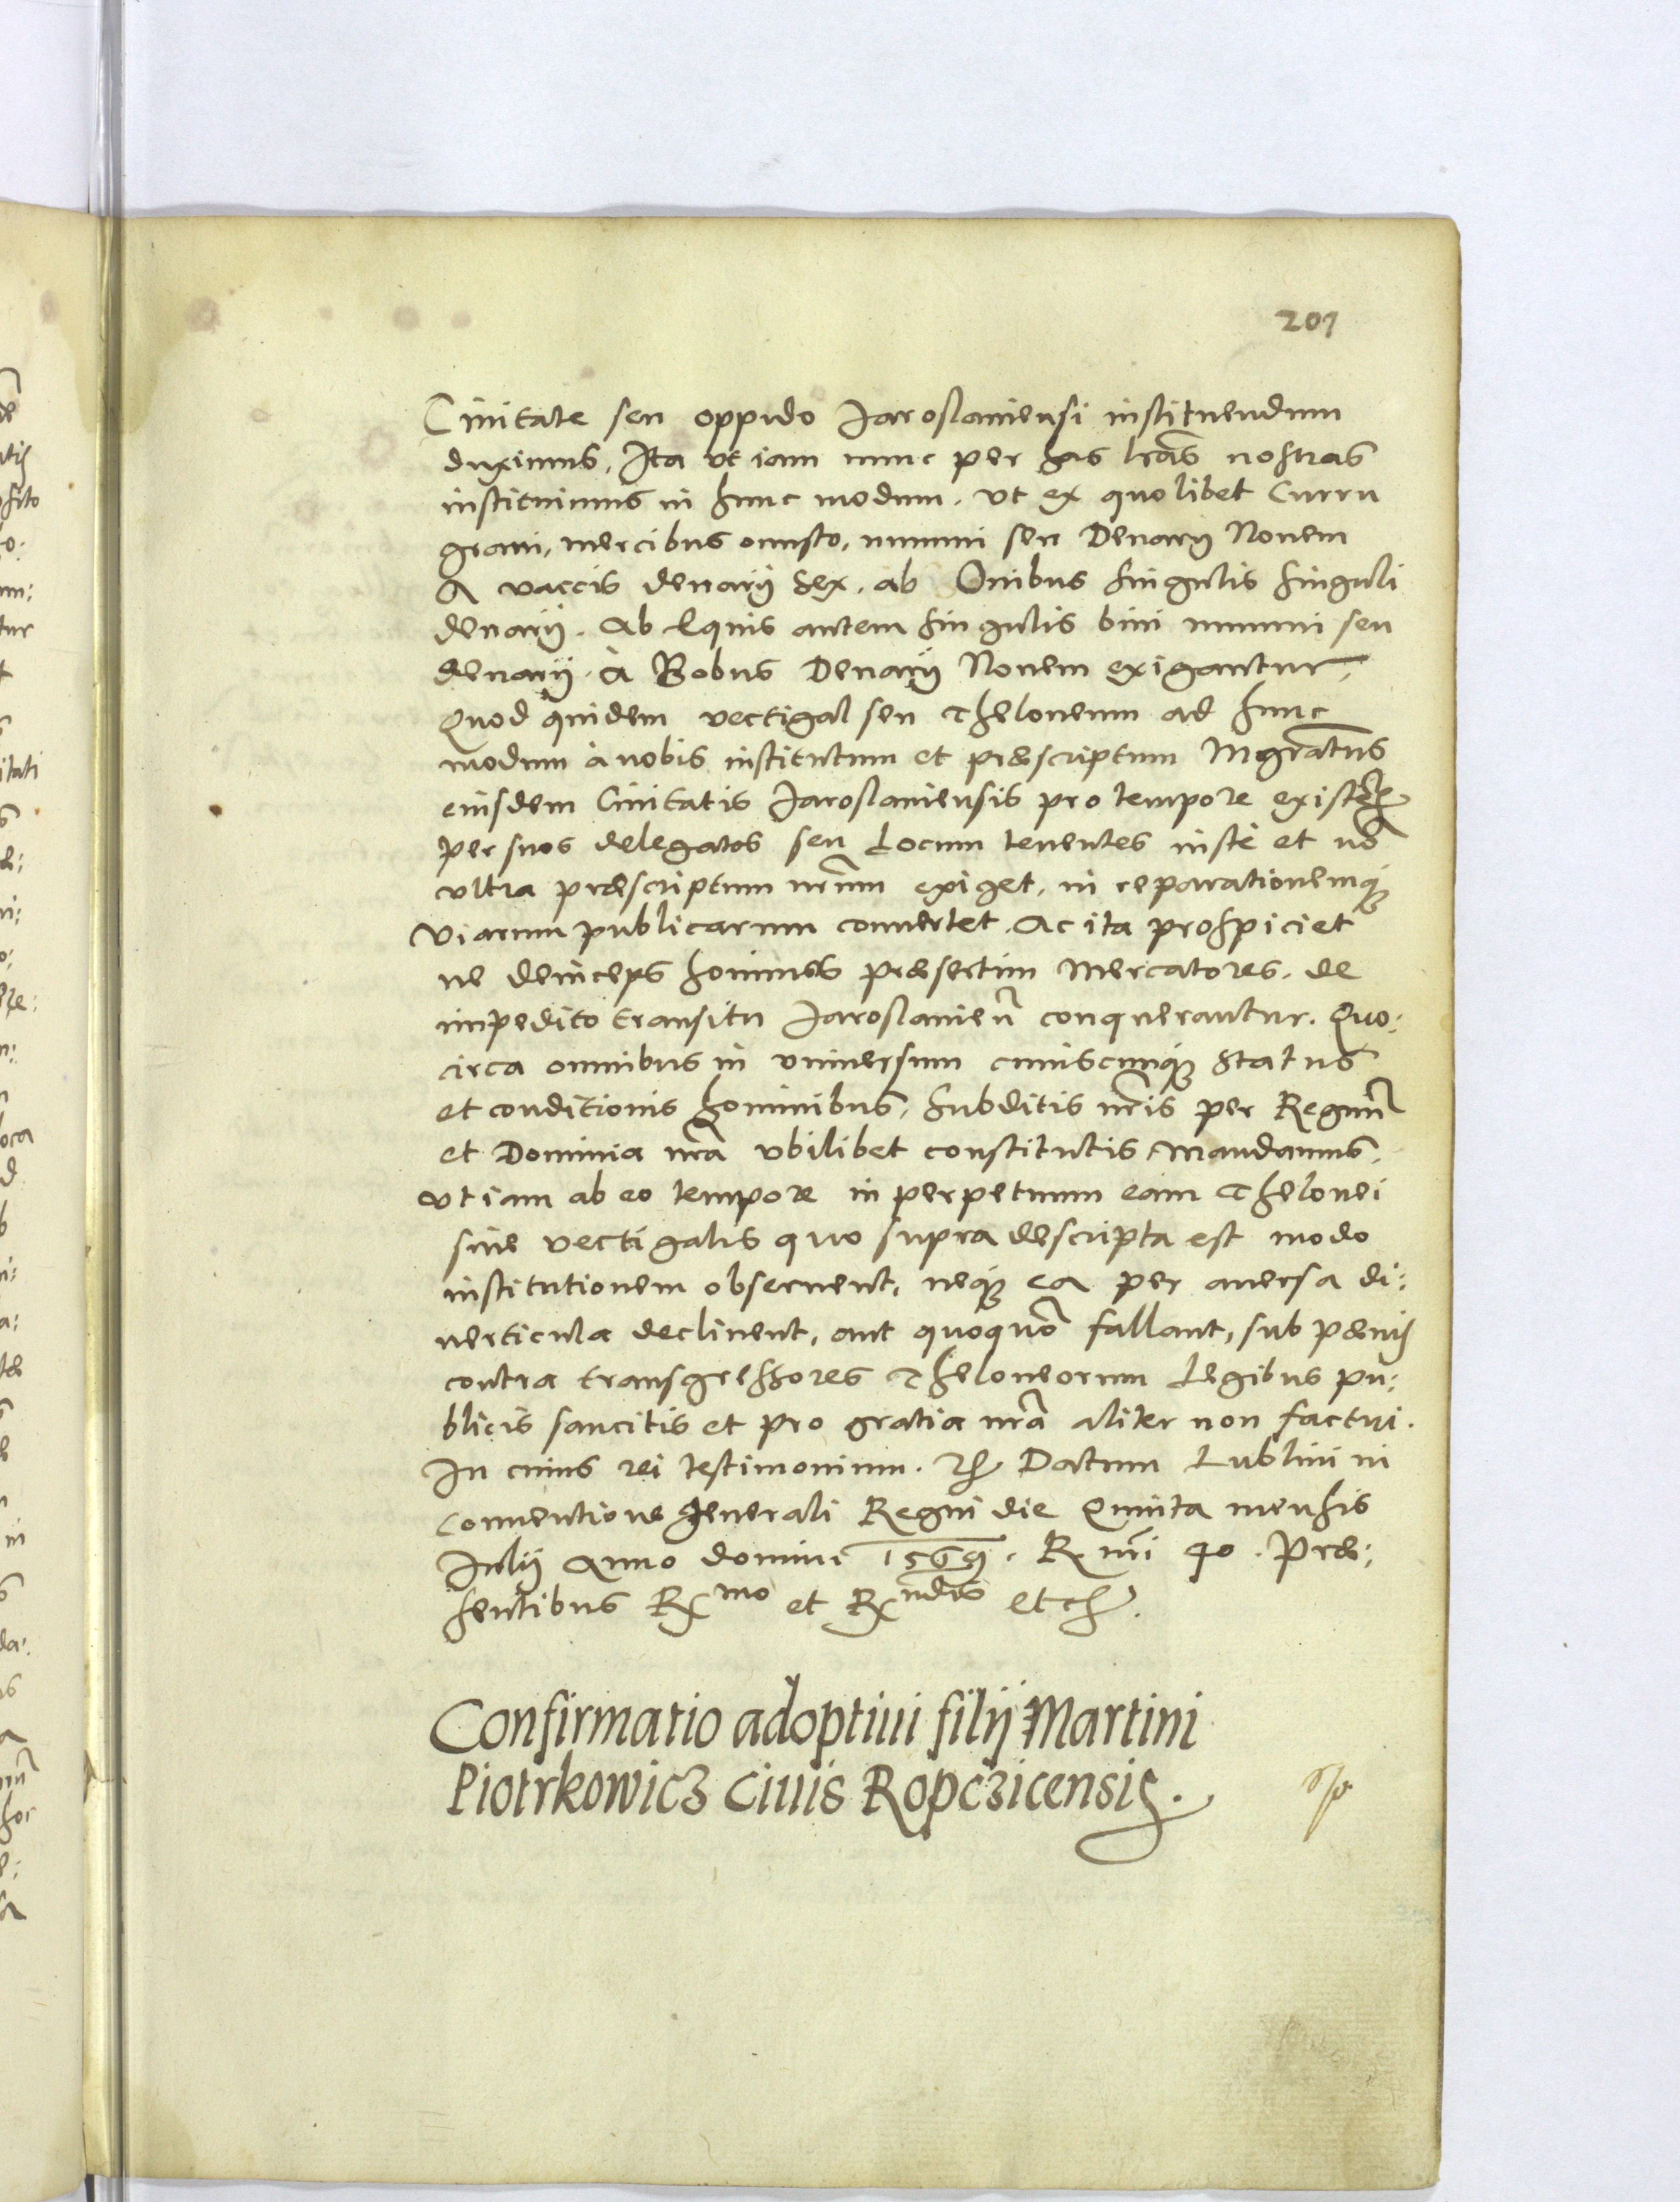 201
Ciuitate seu oppido Jaroslauiensi instituendum
duximus, Ita vt iam nunc per has lras nostras
instituimus in hunc modum. vt ex quolibet Curru
graui, mercibus onusto, nummi seu Denarij Nouem
A vaccis denarij Sex. ab Ouibus singulis singuli
denarij. Ab Equis autem singulis bini nummi seu
denarij. à Bobus Denarij Nouem exigantur,
Quod quidem vectigal seu Theloneum ad hunc
modum à nobis institutum et præscriptum Mgratus
eiusdem Ciuitatis Jaroslauiensis pro tempore existen
per suos delegatos seu Locum tenentes iuste et no
vltra præscriptum nrum exiget, in reparationemq
viarum publicarum conuertet. Ac ita prospiciet
ne deinceps homines præsertim Mercatores, de
impedito transitu Jaroslauien conquerantur. Quo:
circa omnibus in vniuersum cuiuscunq status
et conditionis hominibus, subditis nris per Regnu
et Dominia nra vbilibet constitutis, Mandamus,
vt iam ab eo tempore in perpetuum eam Thelonei
siue vectigalis quo supra descripta est modo
institutionem obseruent, neq ea per auersa di:
uerticula declinent, aut quoquo fallant, sub pænis
contra transgressores Theloneorum Legibus pu:
blicis sancitis et pro gratia nra aliter non facturi.
In cuius rei testimonium. etc Datum Lublini in
Conuentione generali Regni die Quinta mensis
Julij Anno domini 1569. R. nri 40. Præ:
sentibus Rmo et Rndis etc.
Confirmatio adoptiui filij Martini
Piotrkowicz Ciuis Ropczicensis.